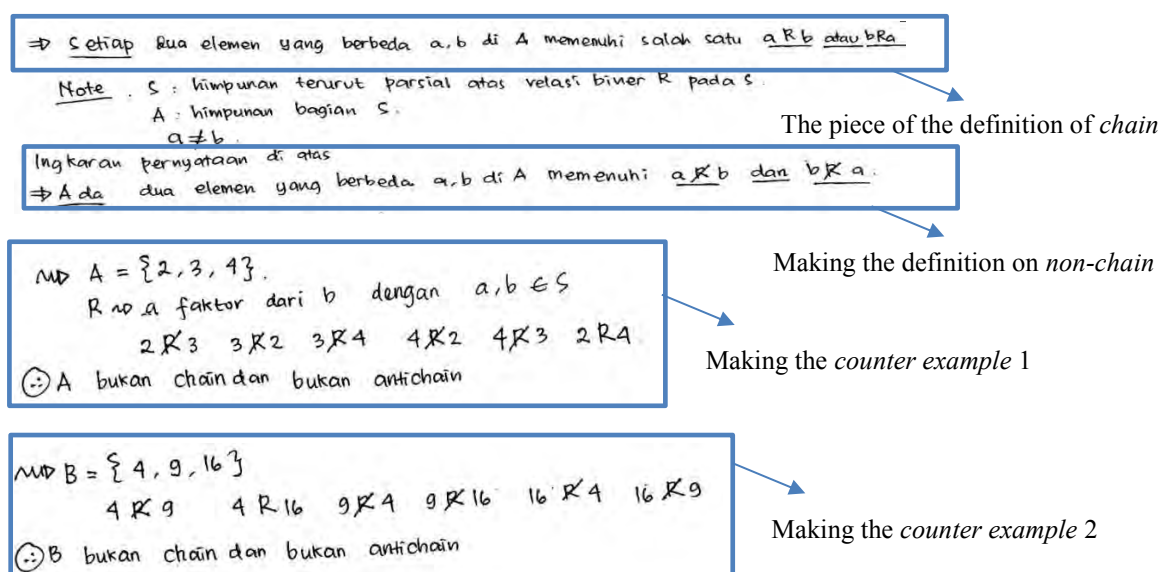 ⇒ Setiap dua elemen yang berbeda a,b di A memenuhi salah satu a R b atau b R a
Note . S : himpunan terurut parsial atas relasi biner R pada S.
A : himpunan bagian S.
a ≠ b.
The piece of the definition of chain
Ingkaran pernyataan di atas
⇒ Ada dua elemen yang berbeda a,b di A memenuhi a R̸ b dan b R̸ a.
Making the definition on non-chain
A = {2,3,4}.
R ⇝ a faktor dari b dengan a,b ∈ S
2 R̸ 3 3 R̸ 2 3 R̸ 4 4 R̸ 2 4 R̸ 3 2 R 4
∴ A bukan chain dan bukan antichain
Making the counter example 1
B = {4, 9, 16}
4 R̸ 9 4 R 16 9 R̸ 4 9 R̸ 16 16 R̸ 4 16 R̸ 9
∴ B bukan chain dan bukan antichain
Making the counter example 2